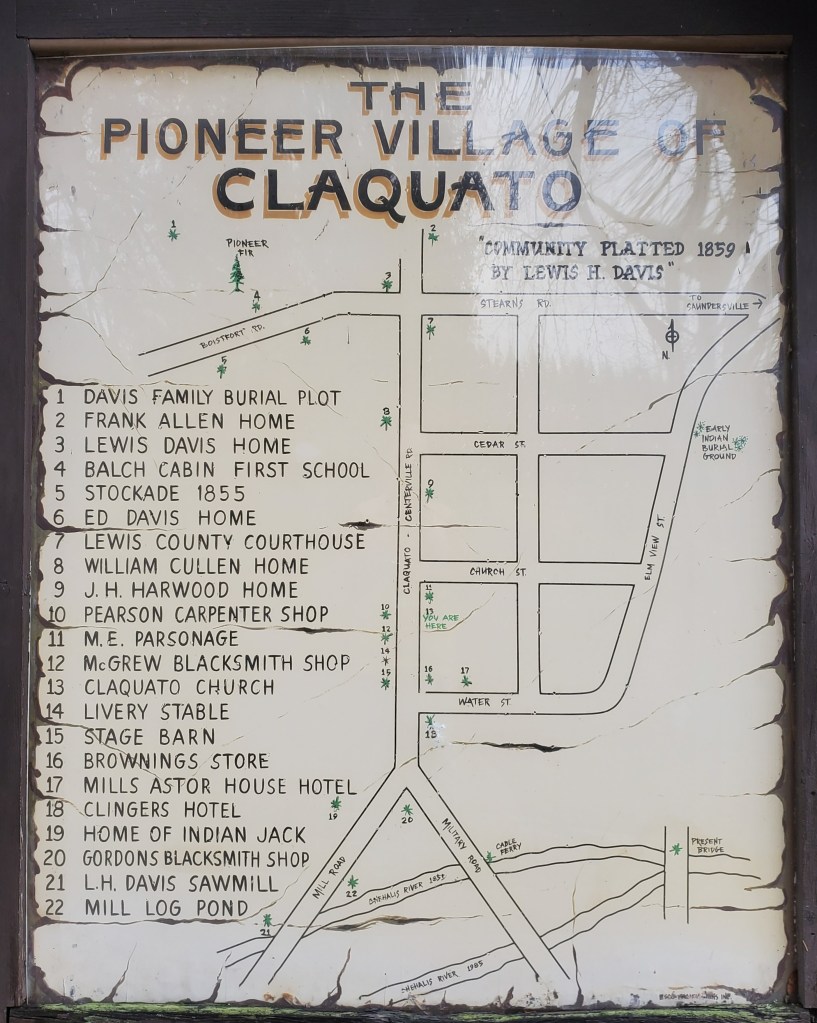 THE
PIONEER VILLAGE OF
CLAQUATO
"COMMUNITY PLATTED 1859
BY LEWIS H. DAVIS"
1
PIONEER
FIR
2
3
4
STEARNS RD.
TO
SAUNDERSVILLE
BOISTFORT RD.
5
6
7
N
1 DAVIS FAMILY BURIAL PLOT
2 FRANK ALLEN HOME
3 LEWIS DAVIS HOME
4 BALCH CABIN FIRST SCHOOL
5 STOCKADE 1855
6 ED DAVIS HOME
7 LEWIS COUNTY COURTHOUSE
8 WILLIAM CULLEN HOME
9 J.H. HARWOOD HOME
10 PEARSON CARPENTER SHOP
11 M.E. PARSONAGE
12 McGREW BLACKSMITH SHOP
13 CLAQUATO CHURCH
14 LIVERY STABLE
15 STAGE BARN
16 BROWNINGS STORE
17 MILLS ASTOR HOUSE HOTEL
18 CLINGERS HOTEL
19 HOME OF INDIAN JACK
20 GORDONS BLACKSMITH SHOP
21 L.H. DAVIS SAWMILL
22 MILL LOG POND
8
CEDAR ST.
EARLY
INDIAN
BURIAL
GROUND
CLAQUATO - CENTERVILLE RD.
9
ELM VIEW ST.
CHURCH ST.
10
11
12
13
YOU ARE
HERE
14
15
16
17
WATER ST.
18
19
20
MILL ROAD
MILITARY ROAD
CABLE
FERRY
PRESENT
BRIDGE
22
21
CHEHALIS RIVER
CHEHALIS RIVER